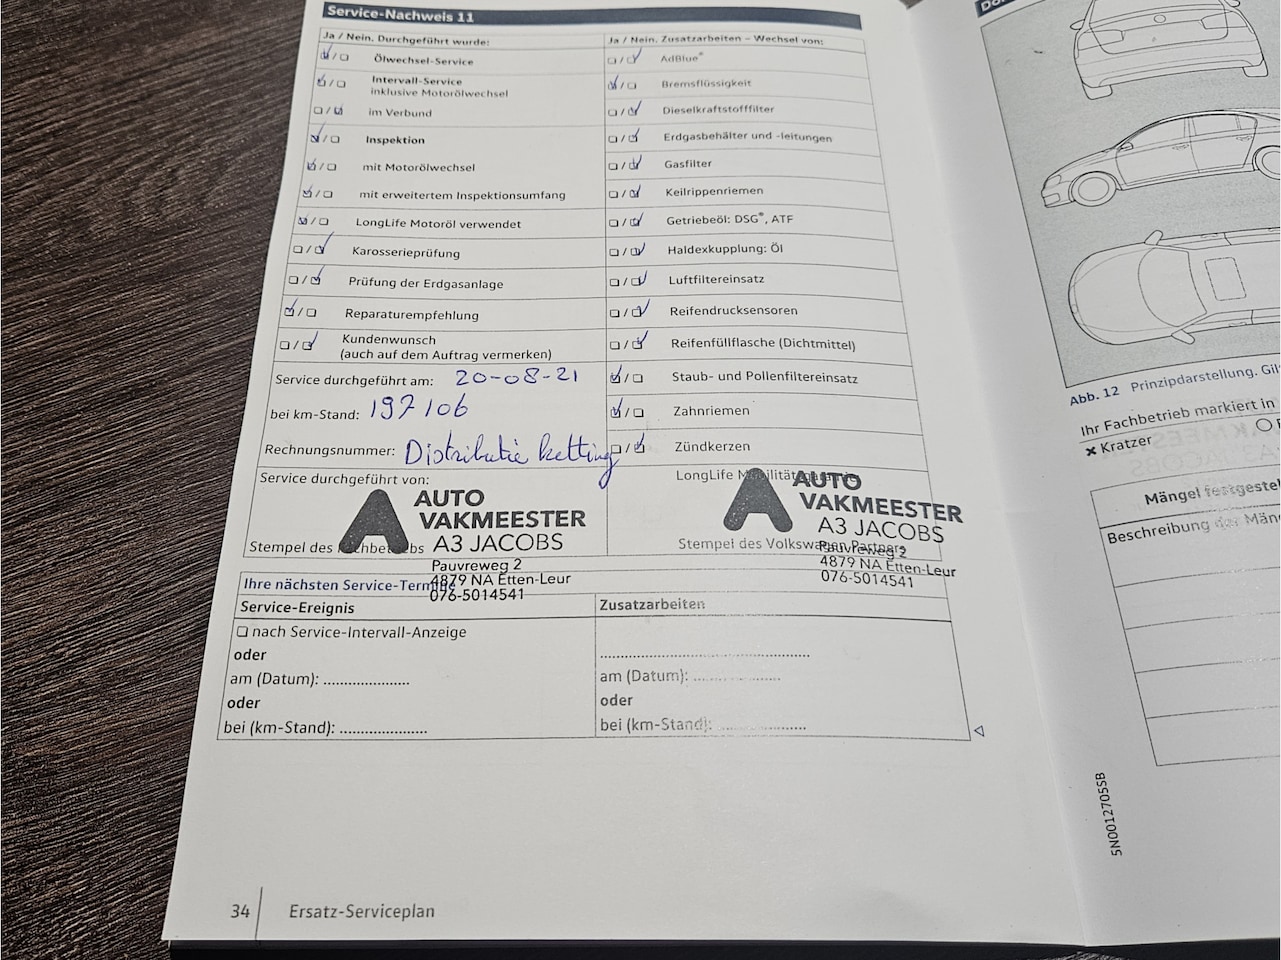 Service-Nachweis 11
Ja / Nein. Durchgeführt wurde:
Ölwechsel-Service
Intervall-Service
inklusive Motorölwechsel
im Verbund
Inspektion
mit Motorölwechsel
mit erweitertem Inspektionsumfang
LongLife Motoröl verwendet
Karosserieprüfung
Prüfung der Erdgasanlage
Reparaturempfehlung
Kundenwunsch
(auch auf dem Auftrag vermerken)
Service durchgeführt am: 20-08-21
bei km-Stand: 197106
Rechnungsnummer: Distributie ketting
Service durchgeführt von:
AUTO
VAKMEESTER
A3 JACOBS
Stempel des Fachbetriebs
Pauvreweg 2
4879 NA Etten-Leur
076-5014541
Ja / Nein. Zusatzarbeiten – Wechsel von:
AdBlue®
Bremsflüssigkeit
Dieselkraftstofffilter
Erdgasbehälter und -leitungen
Gasfilter
Keilrippenriemen
Getriebeöl: DSG®, ATF
Haldexkupplung: Öl
Luftfiltereinsatz
Reifendrucksensoren
Reifenfüllflasche (Dichtmittel)
Staub- und Pollenfiltereinsatz
Zahnriemen
Zündkerzen
LongLife Mobilitätsgarantie
AUTO
VAKMEESTER
A3 JACOBS
Stempel des Volkswagen Partners
Pauvreweg 2
4879 NA Etten-Leur
076-5014541
Ihre nächsten Service-Termine
Service-Ereignis
nach Service-Intervall-Anzeige
oder
am (Datum): ....................
oder
bei (km-Stand): ....................
Zusatzarbeiten
................................................
am (Datum): ....................
oder
bei (km-Stand): ....................
34
Ersatz-Serviceplan
Abb. 12 Prinzipdarstellung.
Ihr Fachbetrieb markiert in
Kratzer
Mängel festgestel
Beschreibung der Män
5N0012705SB